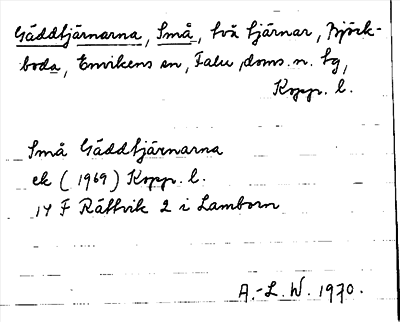 Gäddtjärnarna, Små, två tjärnar, Björk-
boda, Envikens sn, Falu doms. n. tg,
Kopp. l.
Små Gäddtjärnarna
ek (1969) Kopp. l.
14 F Rättvik 2 i Lamborn
A.-L. W. 1970.